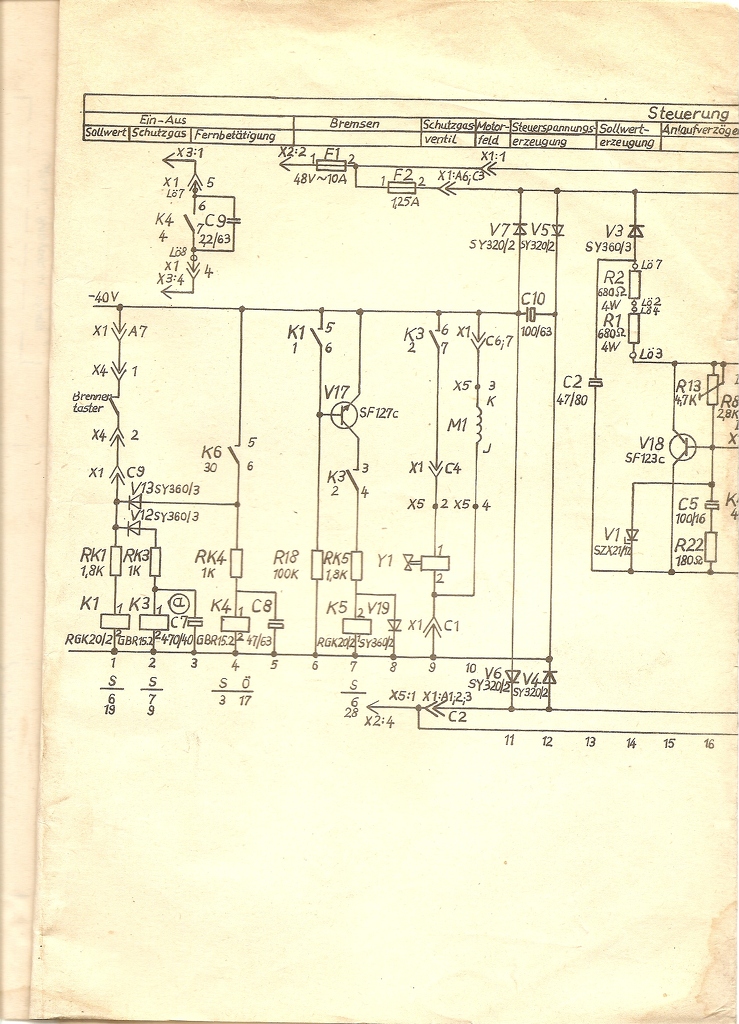 Steuerung
Ein-Aus
Bremsen
Schutzgas- Motor- Steuerspannungs- Sollwert- Anlaufverzöge
Sollwert Schutzgas Fernbetätigung
ventil feld erzeugung erzeugung
X3:1
X2:2 1 F1 2 X1:1
48V~10A
F2 X1:A6;C3
1 2
1,25A
X1 5
Lö7
6
K4 7 C9
4 22/63
Lö8
X1 4
X3:4
V7 V5 V3
SY320/2 SY320/2 SY360/3
Lö7
R2
680Ω
4W Lö2
Lö4
R1
680Ω
4W
Lö3
-40V
C10
100/63
X1 A7
K1 5
1 6
K3 6
2 7
X1 C6;7
X4 1
Brenner
taster
X4 2
X1 C9
V17
SF127c
X5 3
K
M1
J
C2
47/80
R13
4,7K
R8
2,8K
V18
SF123c
K6 5
30 6
K3 3
2 4
X1 C4
X5 2 X5 4
V13 SY360/3
V12 SY360/3
C5
100/16
V1
SZX21/12
R22
180Ω
RK1
1,8K
RK3
1K
RK4
1K
R18
100K
RK5
1,8K
Y1 1
2
K1 1
2
RGK20/2
K3 1
2
GBR15.2
a
C7
470/40
K4 1
2
GBR15.2
C8
47/63
K5 2
1
RGK20/2
V19
SY360/2
X1 C1
1 2 3 4 5 6 7 8 9 10
V6 V4
SY320/2 SY320/2
S S S Ö S
6 7 3 17 6
19 9 28
X5:1 X1:A1;2;3
C2
X2:4
11 12 13 14 15 16